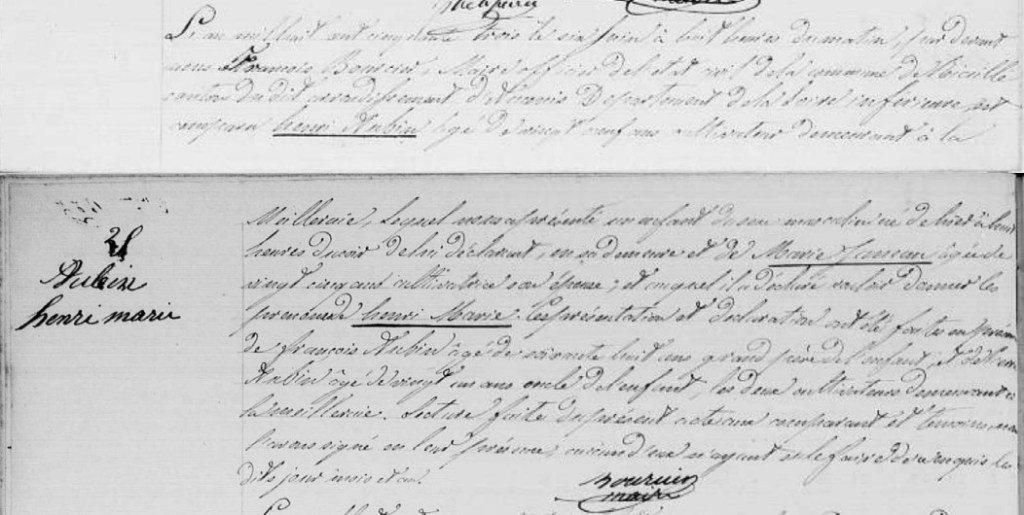 L'an mil huit cent cinquante trois le six Juin à huit heures du matin, par devant
nous François Boursier, Maire officier de l'état civil de la commune de
canton du dit arrondissement d'Ancenis Département de la Loire inférieure, est
comparu henri Aubin âgé de vingt neuf ans cultivateur demeurant à la
Meilleraie, lequel nous a présenté un enfant du sexe masculin né de hier à huit
heures du soir de lui déclarant, en sa demeure et de Marie âgée de
vingt cinq ans cultivatrice son épouse; et auquel il a déclaré vouloir donner les
prénoms de henri Marie. Ces présentation et declaration ont été faites en
de françois Aubin âgé de soixante huit ans grand père de l'enfant, et de
Aubin âgé de vingt un ans oncle de l'enfant, les deux cultivateurs demeurant à
la meilleraie. Lecture faite du présent acte aux comparant et temoins,
l'avons signé en leur présence, aucun d'eux n'ayant su le faire de ce requis les
dits jour mois et an.
Aubin
henri marie
Boursier
maire